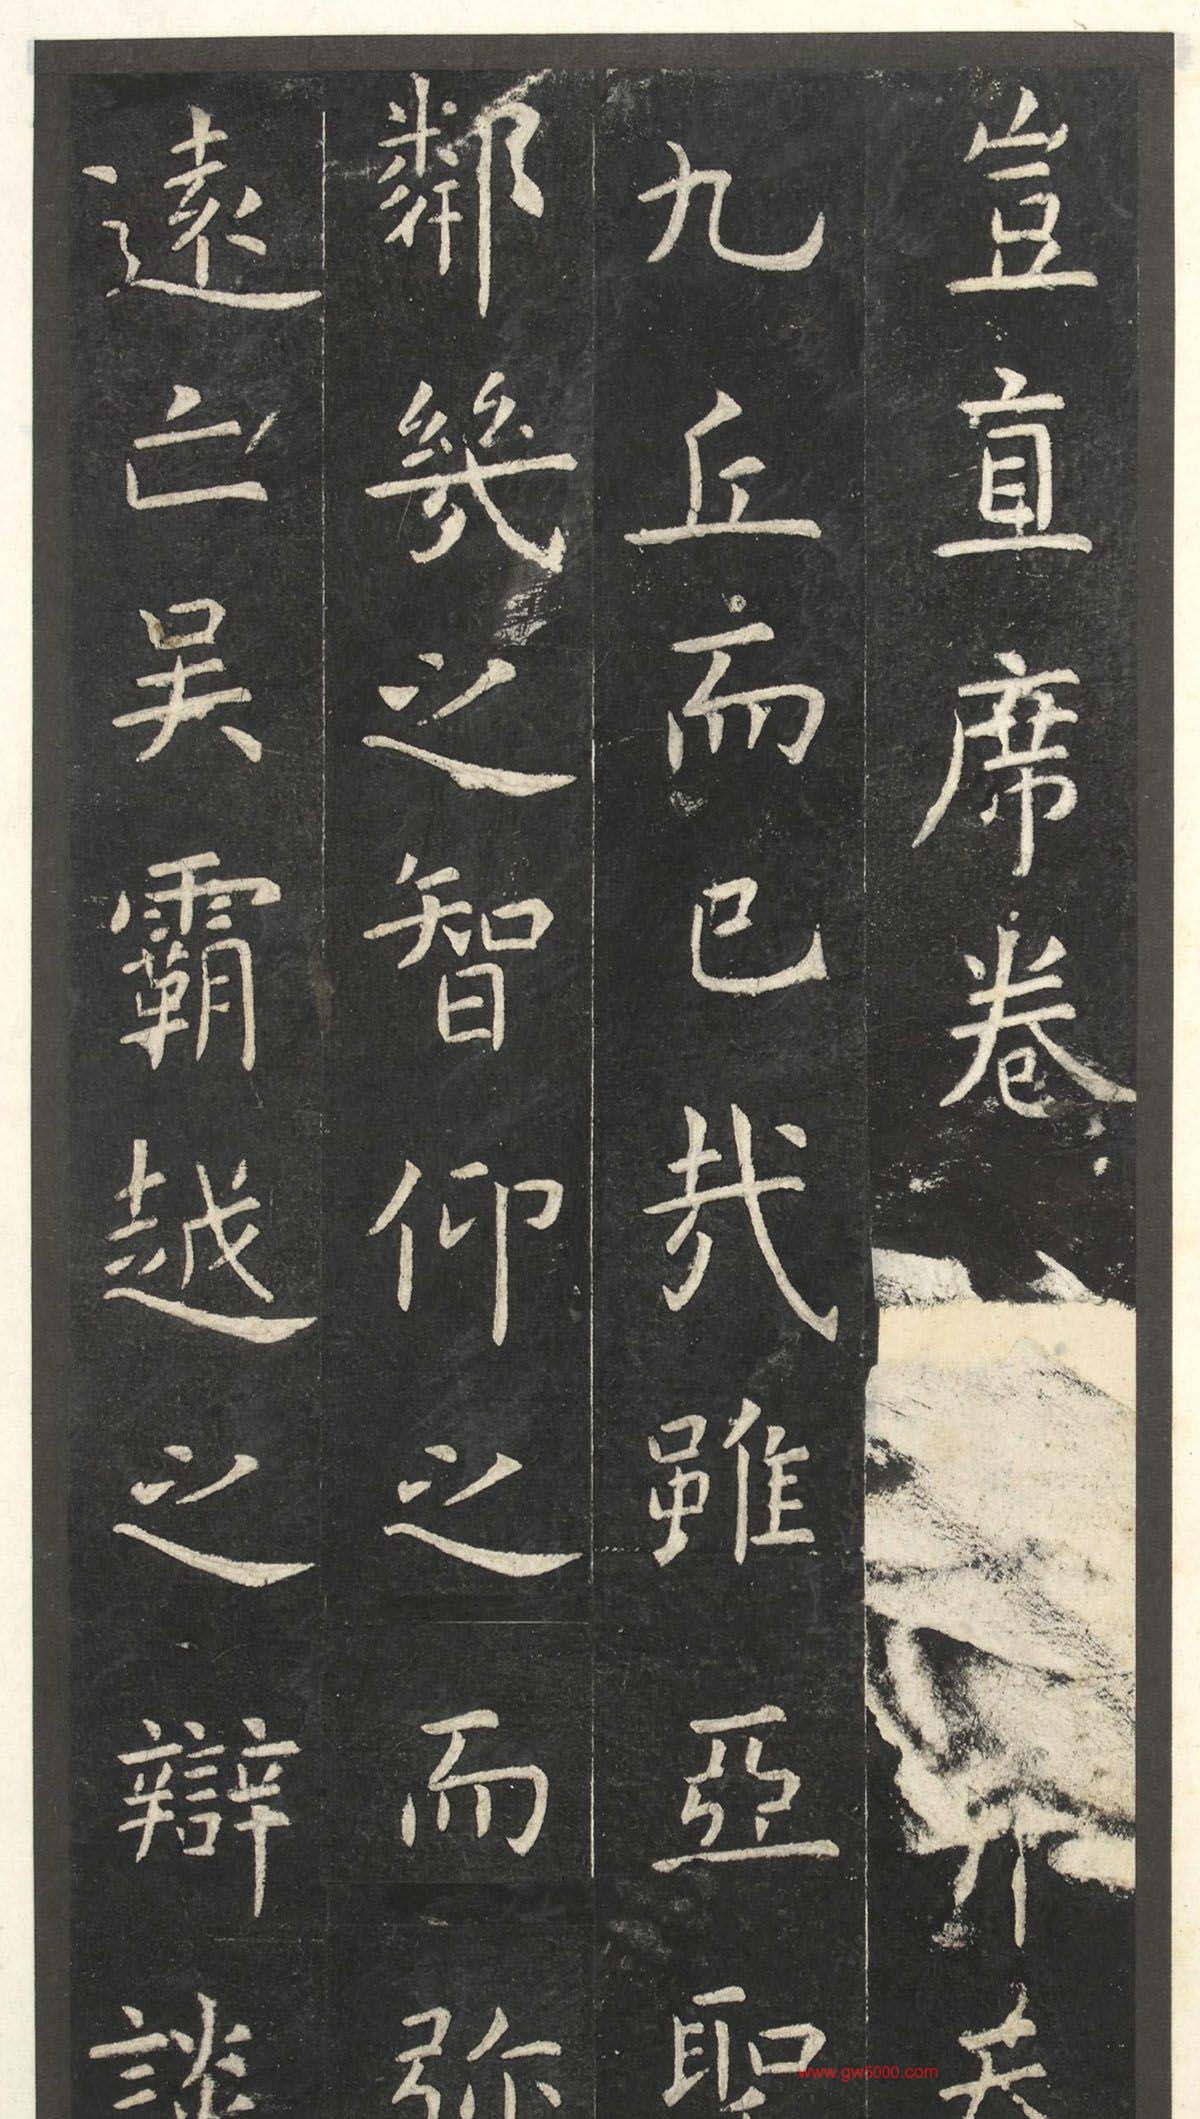 豈直席卷
九丘而已哉雖亞聖
鄰幾之智仰之而弥
遠亡吳霸越之辯談
www.gw5000.com